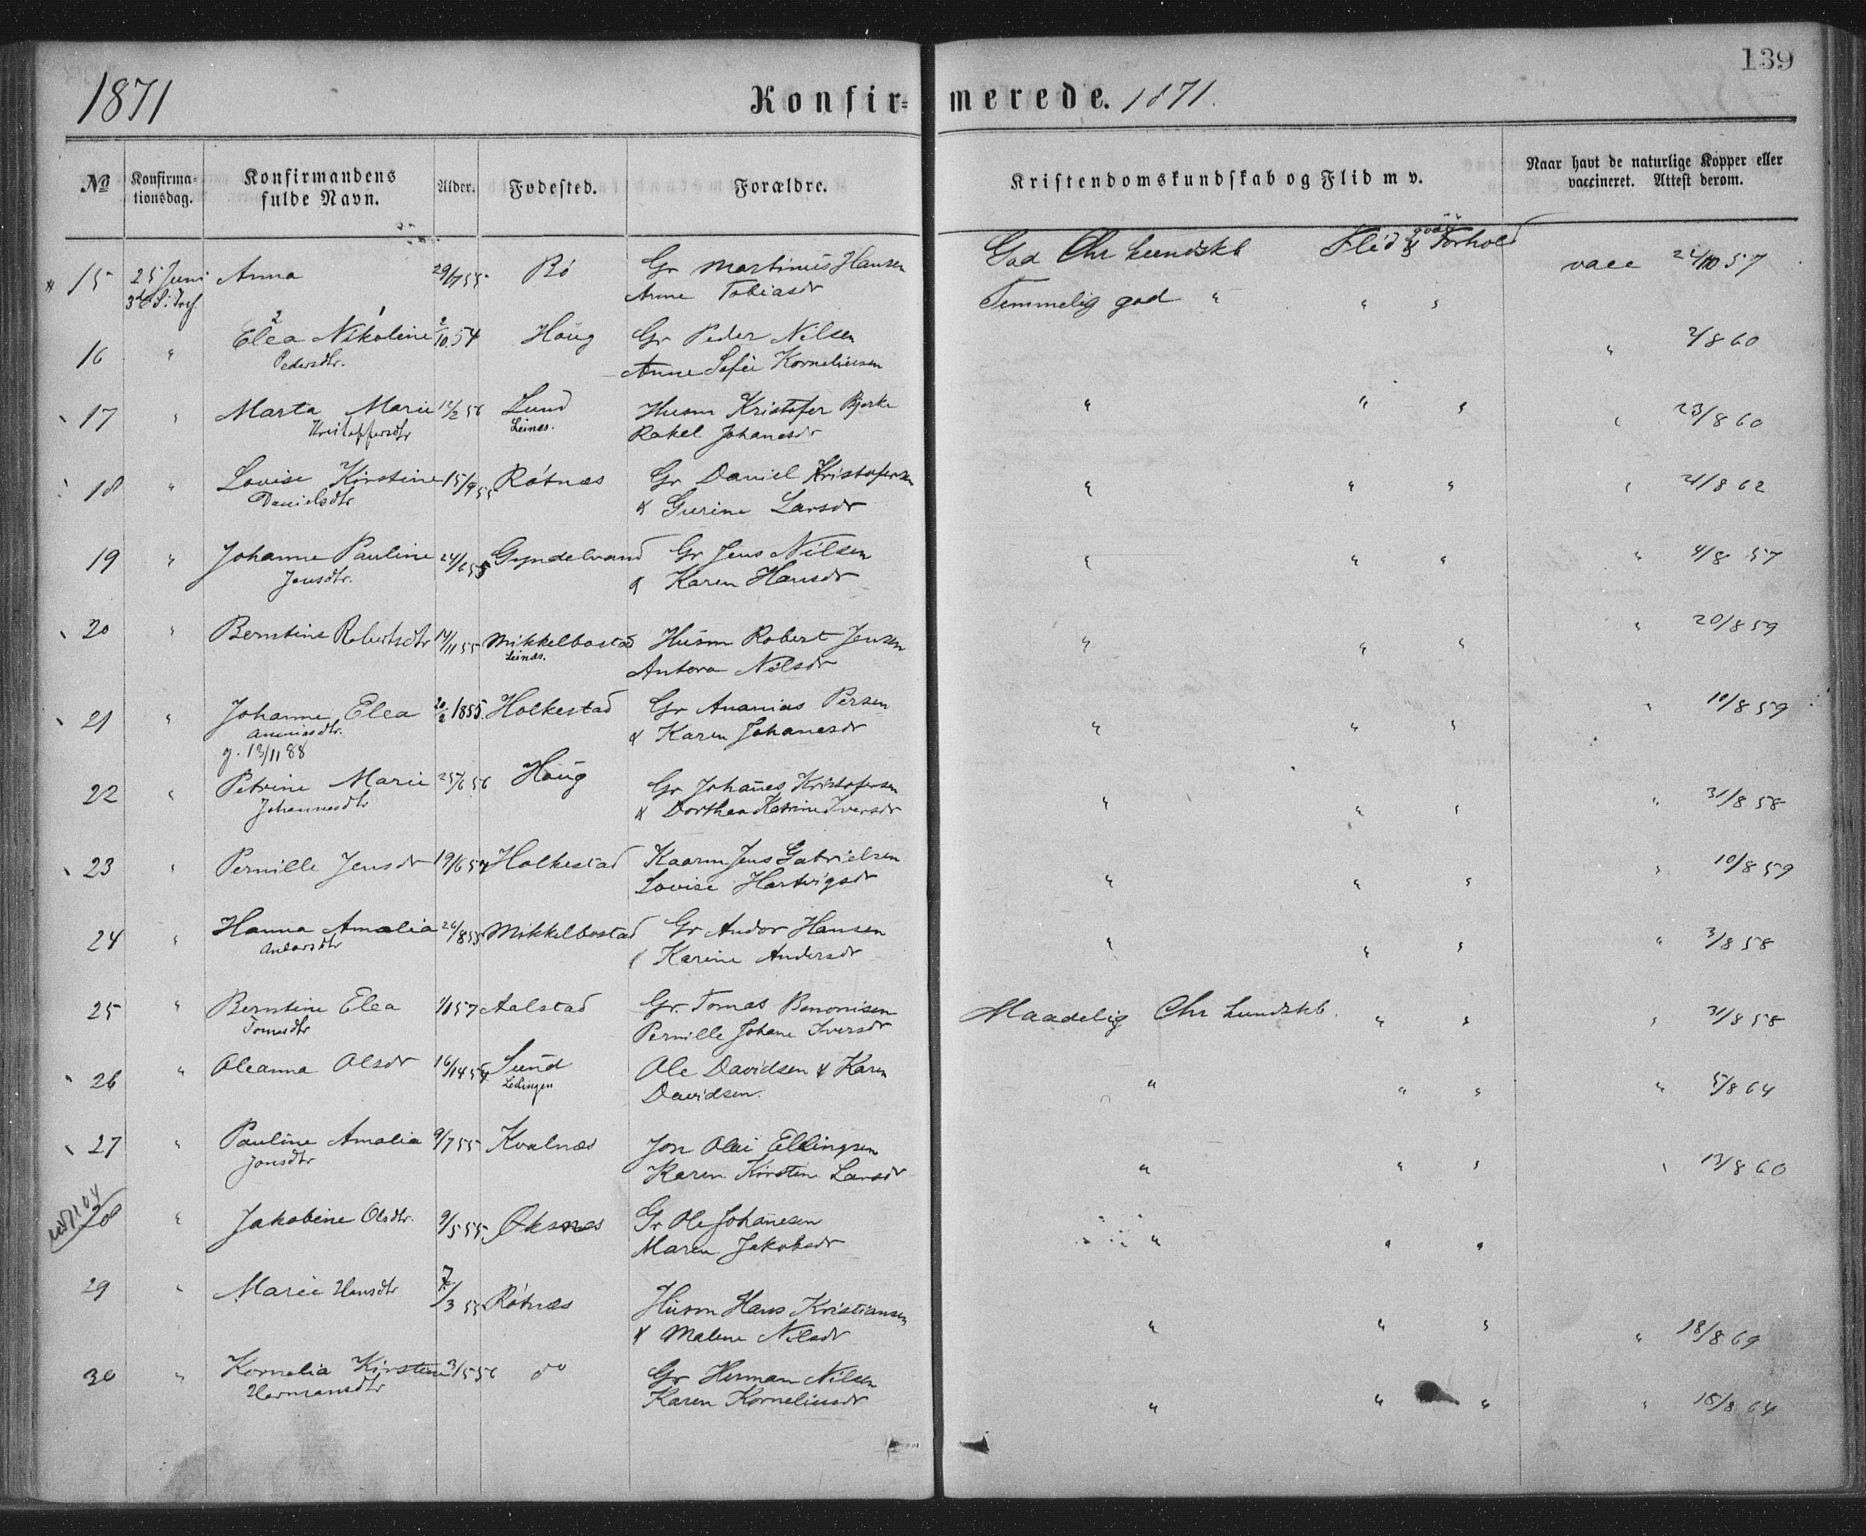 139
1871 Konfir= merede. 1871.
No Konfirma= tionsdag. Konfirmandens fulde Navn. Alder. Fødested. Forældre. Kristendomskundskab og Flid m v. Naar havt de naturlige Kopper eller vaccineret. Attest derom.
15 25 Juni Anna 29/7 55 Bö Gr Martinus Hansen God Chr kundskb Flid & gode Forhold vacc 24/10 57
Anne Tobiasdr Temmelig god " " "
16 " Elea Nikoline 2/10 54 Houg Gr Peder Nilsen " 2/8 60
Pedersdtr. Anne Sofie Kornelius​en
17 " Marta Marie 12/2 56 Lund Husm Kristofer Bjerke " " " " 23/8 60
Kristoffersdtr Leines. Rakel Johanesdr
18 " Lovise Kirstine 15/9 55 Rötnæs Gr Daniel Kristofersen " " " " 21/8 62
Danielsdtr & Gurine Larsdr
19 " Johanne Pauline 24/6 55 Gyndelvand Gr Jens Nilsen " " " " 4/8 57
Jensdtr. & Karen Hansdr
20 " Berntine Robertsdtr 14/11 55 Mikkelbostad Husm Robert Jensen " " " " 20/8 59
Leines. Antora Nilsdr
21 " Johanne Elea 20/2 1855. Holkestad Gr Ananias Persen " " " " 10/8 59
Ananiasdtr. & Karen Johanesdr
g. 13/11 88
22 " Petrine Marie 25/6 56 Houg Gr Johanes Kristofersen " " " " 31/8 58
Johannesdtr & Dorthea Katrine Iversdr
23 " Pernille Jensdr 19/6 54 Holkestad Kaarm Jens Gabrielsen " " " " 10/8 59
Lovise Hartvigsdr
24 " Hanna Amalia 26/8 55 Mikkelbostad Gr Andor Hansen " " " " 3/8 58
Andorsdtr & Karine Andersdr
25 " Berntine Elea 1/10 57 Aalstad Gr. Tomas Benonisen Maadelig Chr kundskb. " " " 31/8 58
Tomasdtr Pernille Johane Iversdr
26 " Oleanna Olsdr 16/14 54 Sund Ole Davidsen & Karen " " " " 5/8 64
Lødingen Davidsen.
27 " Pauline Amalia 9/7 55 Kvalnæs Jon Olai Ellingsen " " " " 13/8 60
Jonsdtr Karen Kirsten Larsdr
28 " Jakobine Olsdtr. 9/5 55. Öksnes Gr Ole Johanesen " " "
Maren Jakobsdr
29 " Marie Hansdtr 7/3 55 Rötnæs Husm Hans Kristiansen " " " " 18/8 69
& Malene Nilsdr
30 " Kornelia Kirstine 3/5 56 do Gr Herman Nilsen " " " " 15/8 64
Hermansdtr Karen Korneliusdr